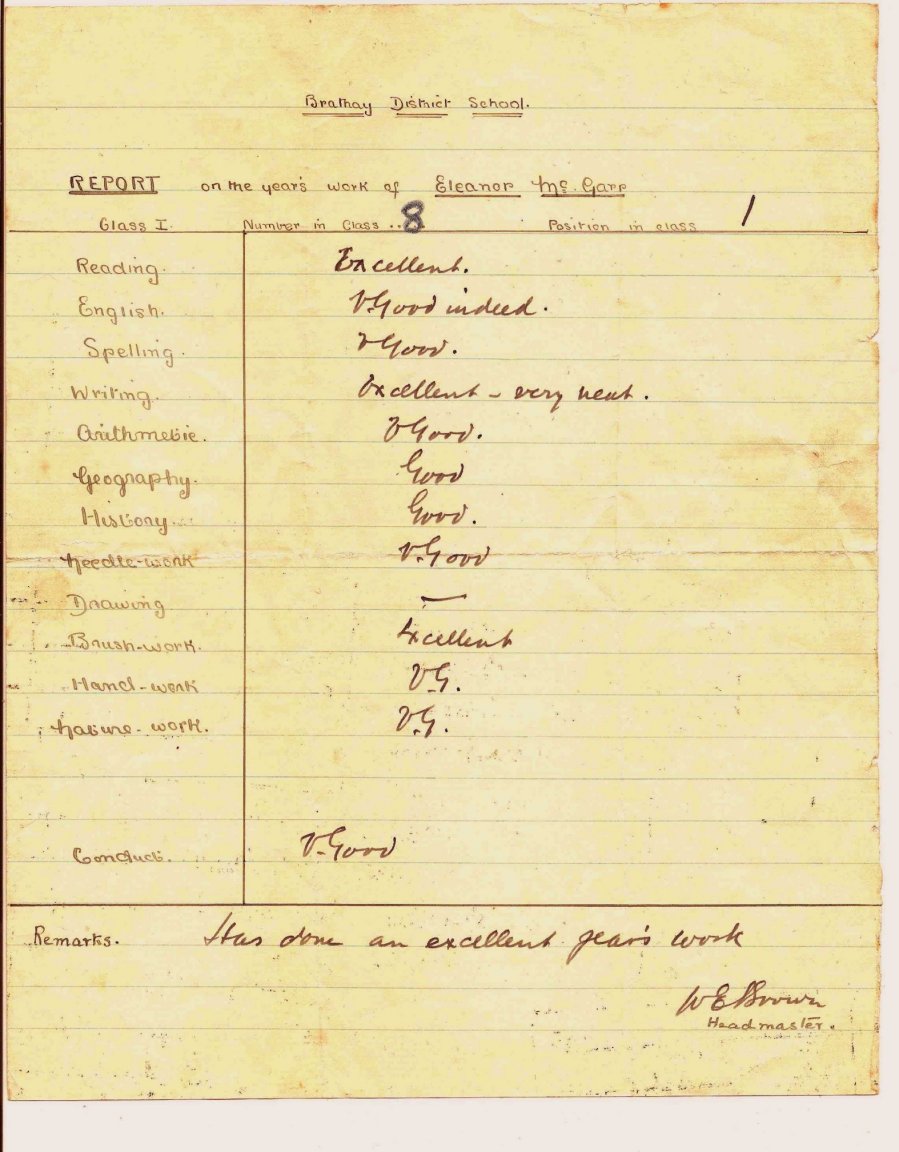 Brathay District School.
REPORT on the year's work of Eleanor Mc. Garr
Class I. Number in Class .. 8 Position in class 1
Reading. Excellent.
English. V.Good indeed.
Spelling. V Good.
Writing. Excellent - very neat.
Arithmetic. V Good.
Geography. Good
History. Good.
Needle-work V.Good
Drawing —
Brush-work. Excellent
Hand-work V.G.
Nature-work. V.G.
Conduct. V.Good
Remarks. Has done an excellent year's work
W E Brown
Headmaster.